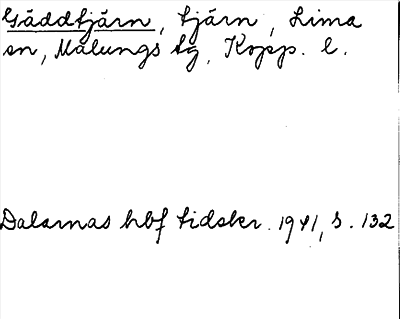 Gäddtjärn, tjärn, Lima
sn, Malungs tg, Kopp. l.
Dalarnas hbf tidskr. 1941, s. 132